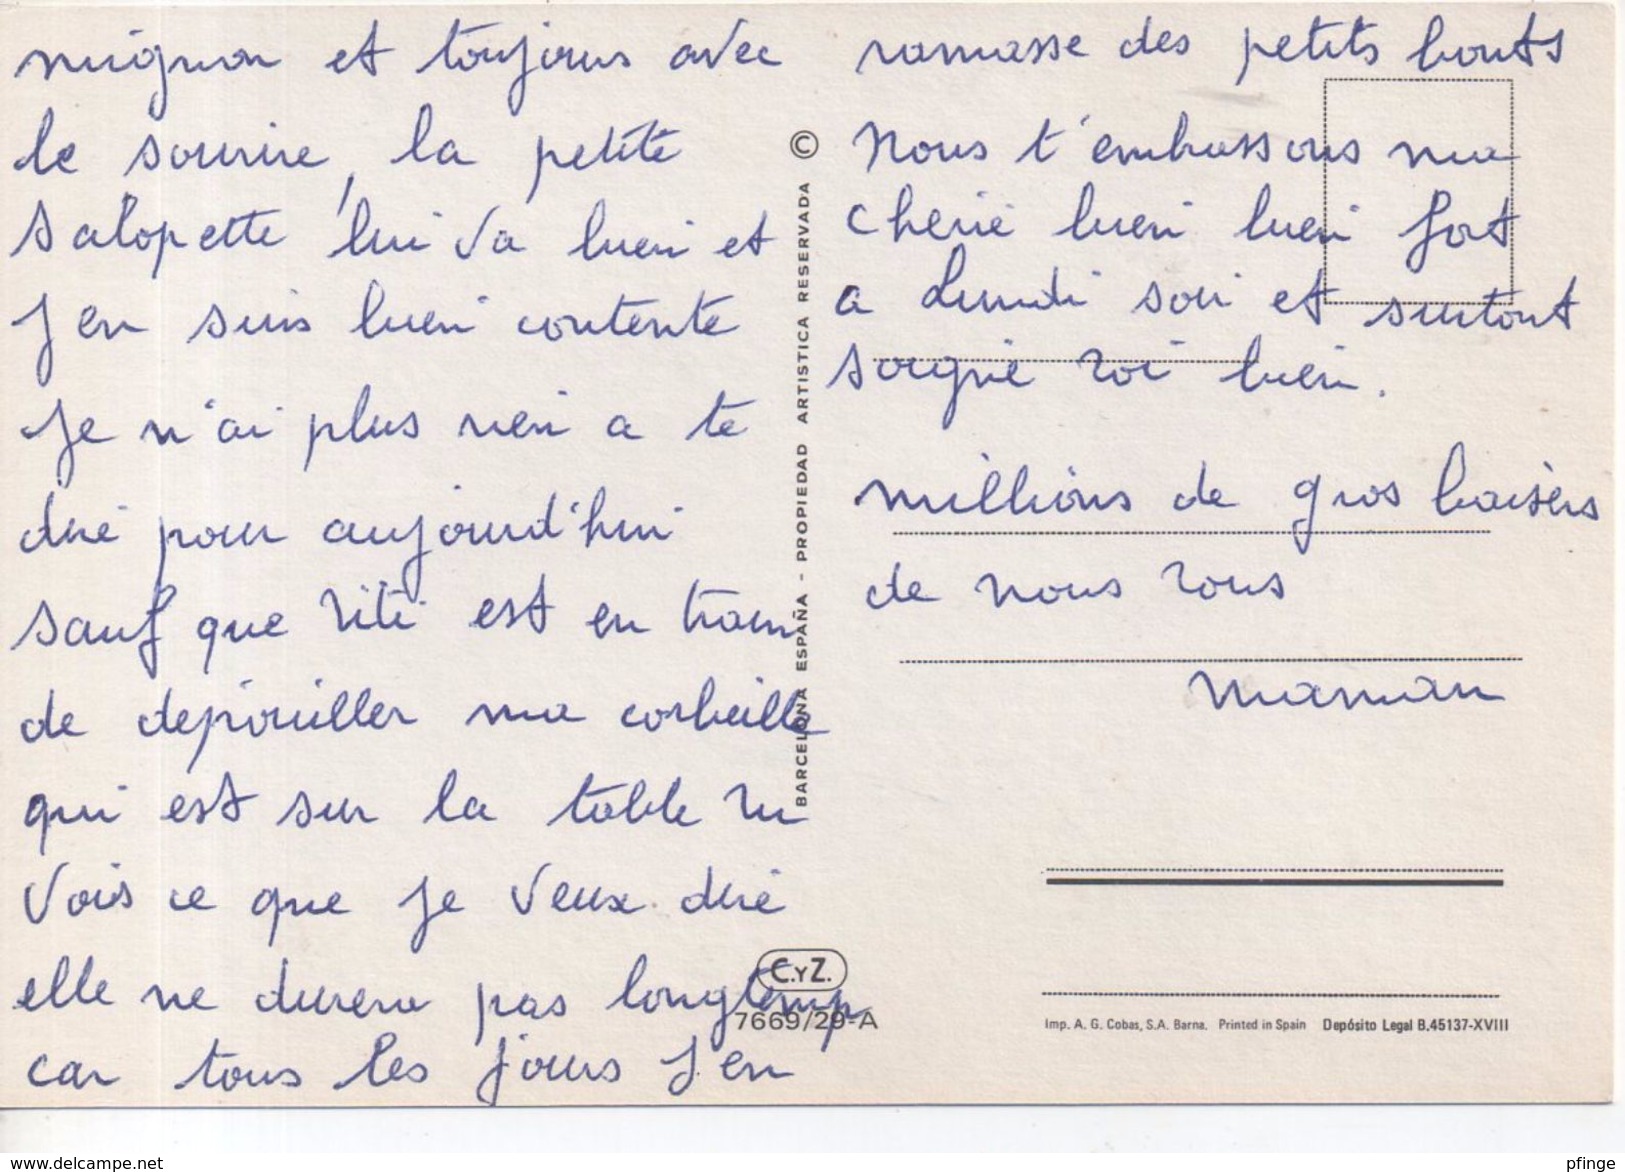 mignon et toujours avec
le sourire, la petite
salopette lui va bien et
j en suis bien contente
Je n'ai plus rien a te
dire pour aujourd'hui
sauf que titi est en train
de depouiller ma corbeille
qui est sur la table tu
vois ce que je veux dire
elle ne durera pas longtemp
car tous les jours j en
ramasse des petits bouts
Nous t'embrassons ma
cherie bien bien fort
a Lundi soir et surtout
soigne toi bien.
millions de gros baisers
de nous tous
maman
©
BARCELONA ESPAÑA - PROPIEDAD ARTISTICA RESERVADA
C.YZ.
7669/29-A
Imp. A. G. Cobas, S.A. Barna. Printed in Spain Depósito Legal B.45137-XVIII
www.delcampe.net
pfinge